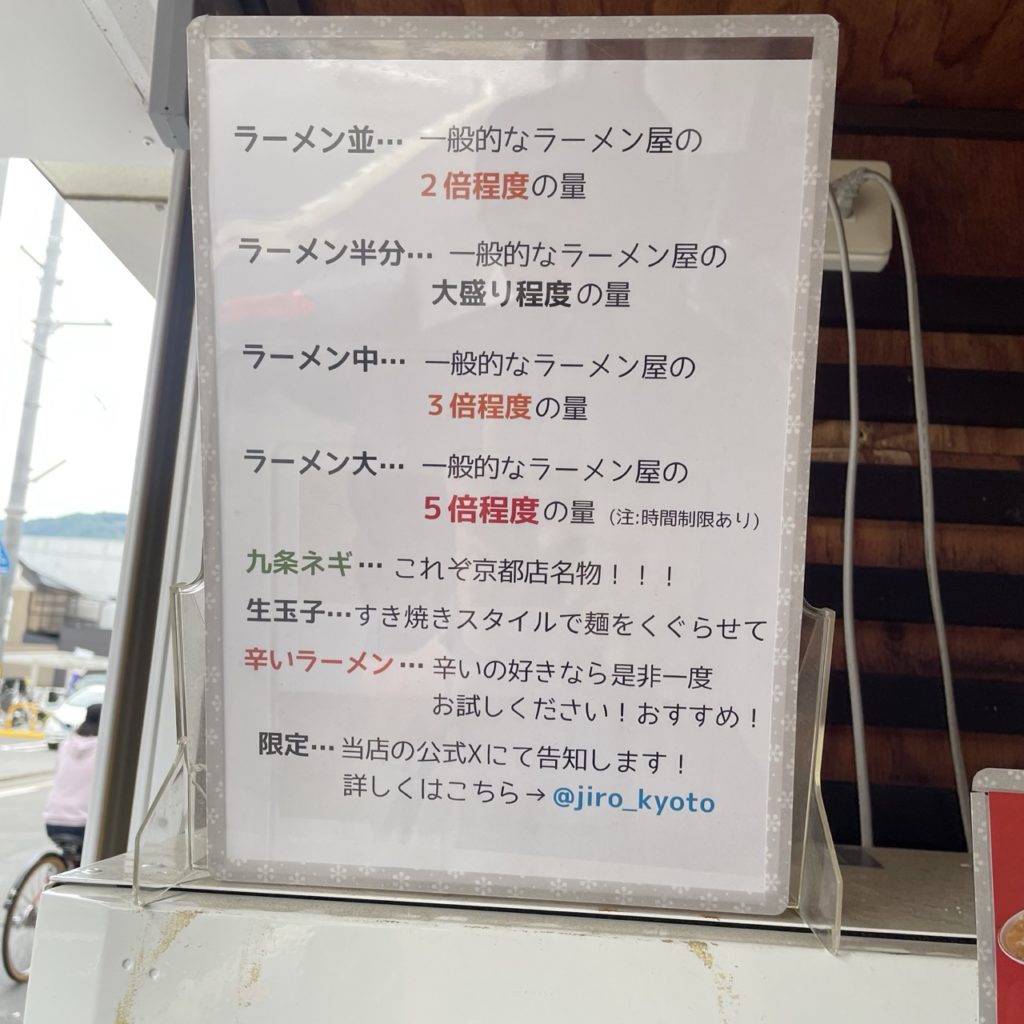 ラーメン並… 一般的なラーメン屋の
２倍程度の量
ラーメン半分… 一般的なラーメン屋の
大盛り程度の量
ラーメン中… 一般的なラーメン屋の
３倍程度の量
ラーメン大… 一般的なラーメン屋の
５倍程度の量（注:時間制限あり）
九条ネギ… これぞ京都店名物！！！
生玉子…すき焼きスタイルで麺をくぐらせて
辛いラーメン… 辛いの好きなら是非一度
お試しください！おすすめ！
限定…当店の公式Xにて告知します！
詳しくはこちら→@jiro_kyoto